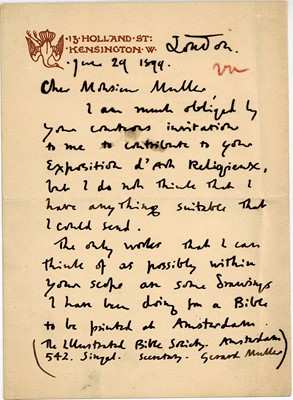 13·HOLLAND·ST:
KENSINGTON·W.
London.
June 29 1899.
Cher Monsieur Muller,
I am much obliged by
your courteous invitation
to me to contribute to your
Exposition d'Art Religieux,
but I do not think that I
have anything suitable that
I could send.
The only works that I can
think of as possibly within
your scope are some drawings
I have been doing for a Bible
to be printed at Amsterdam.
(The Illustrated Bible Society. Amsterdam
542. Singel. Secretary. Gerard Muller)